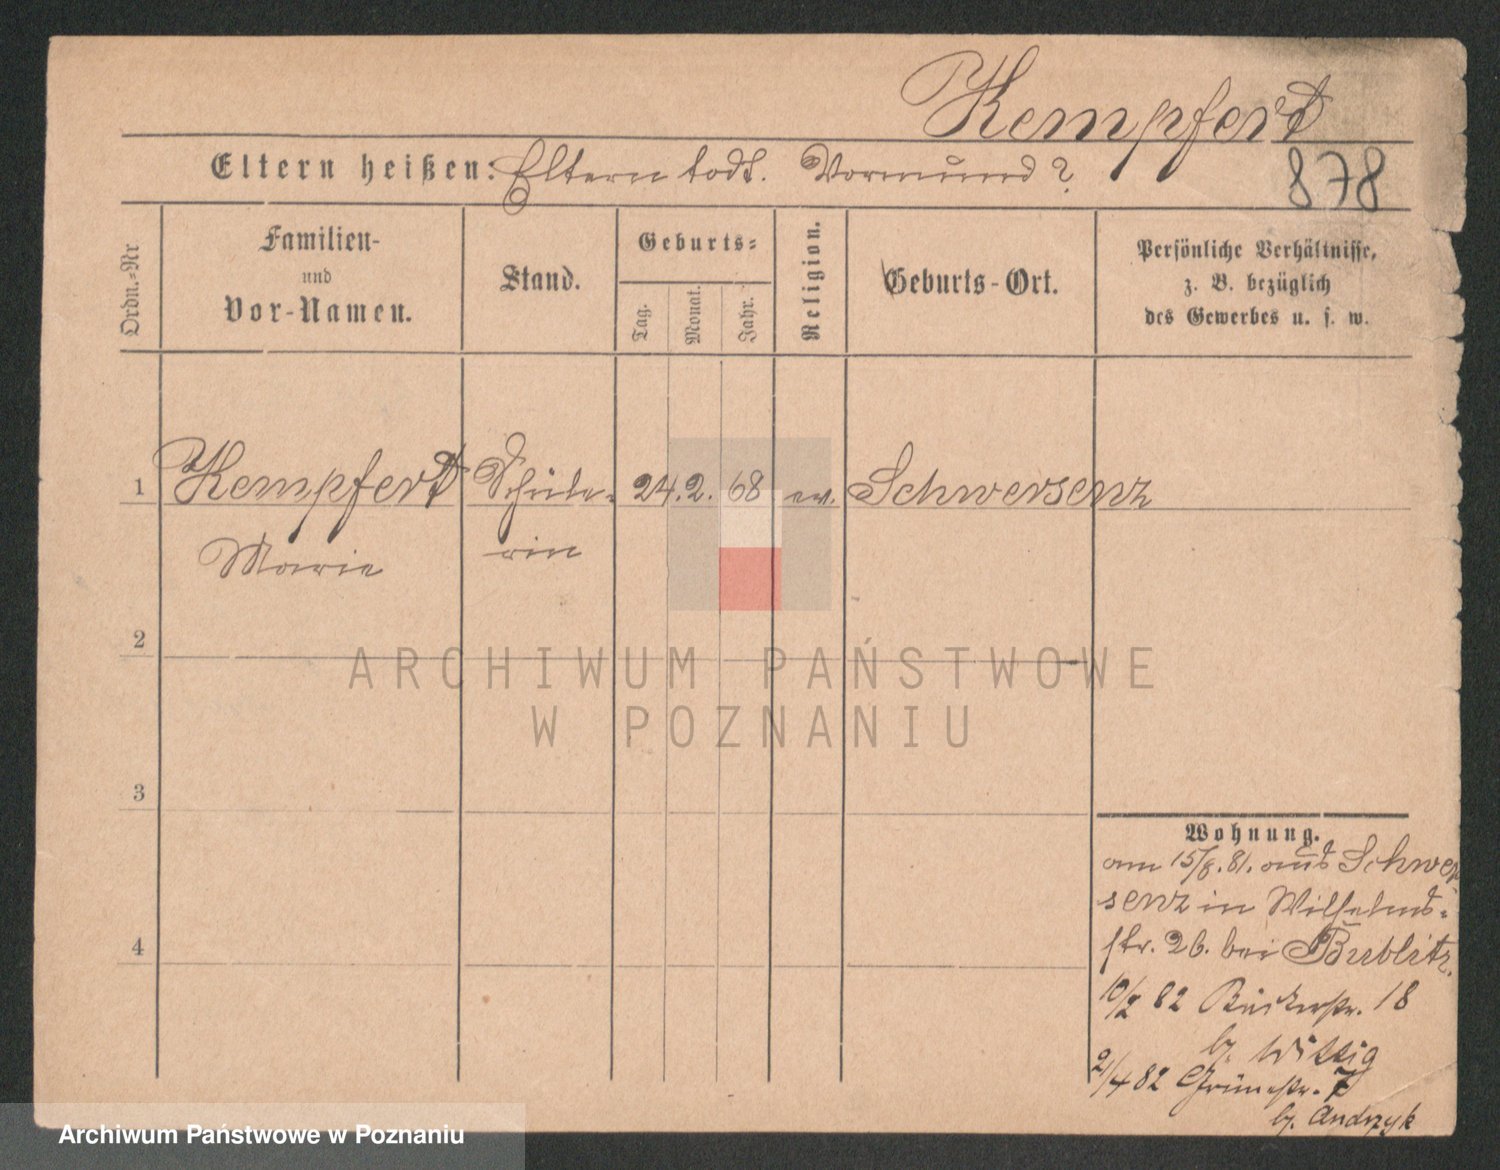 Kempfert
Eltern heißen: Eltern todt. Vormund?
878
Ordn.-Nr
Familien-
und
Vor-Namen.
Stand.
Geburts-
Tag.
Monat.
Jahr.
Religion.
Geburts-Ort.
Persönliche Verhältnisse,
z. B. bezüglich
des Gewerbes u. s. w.
1 Kempfert Schüle- 24. 2. 68 ev. Schwersenz
Marie rin
2
ARCHIWUM PAŃSTWOWE
W POZNANIU
3
Wohnung.
am 15/8. 81. aus Schwer-
senz in Wilhelms-
str. 26. bei Bublitz.
10/2 82 Bäckerstr. 18
b. Wittig
2/4 82 Grünestr. 7
b. Andrzyk
4
Archiwum Państwowe w Poznaniu